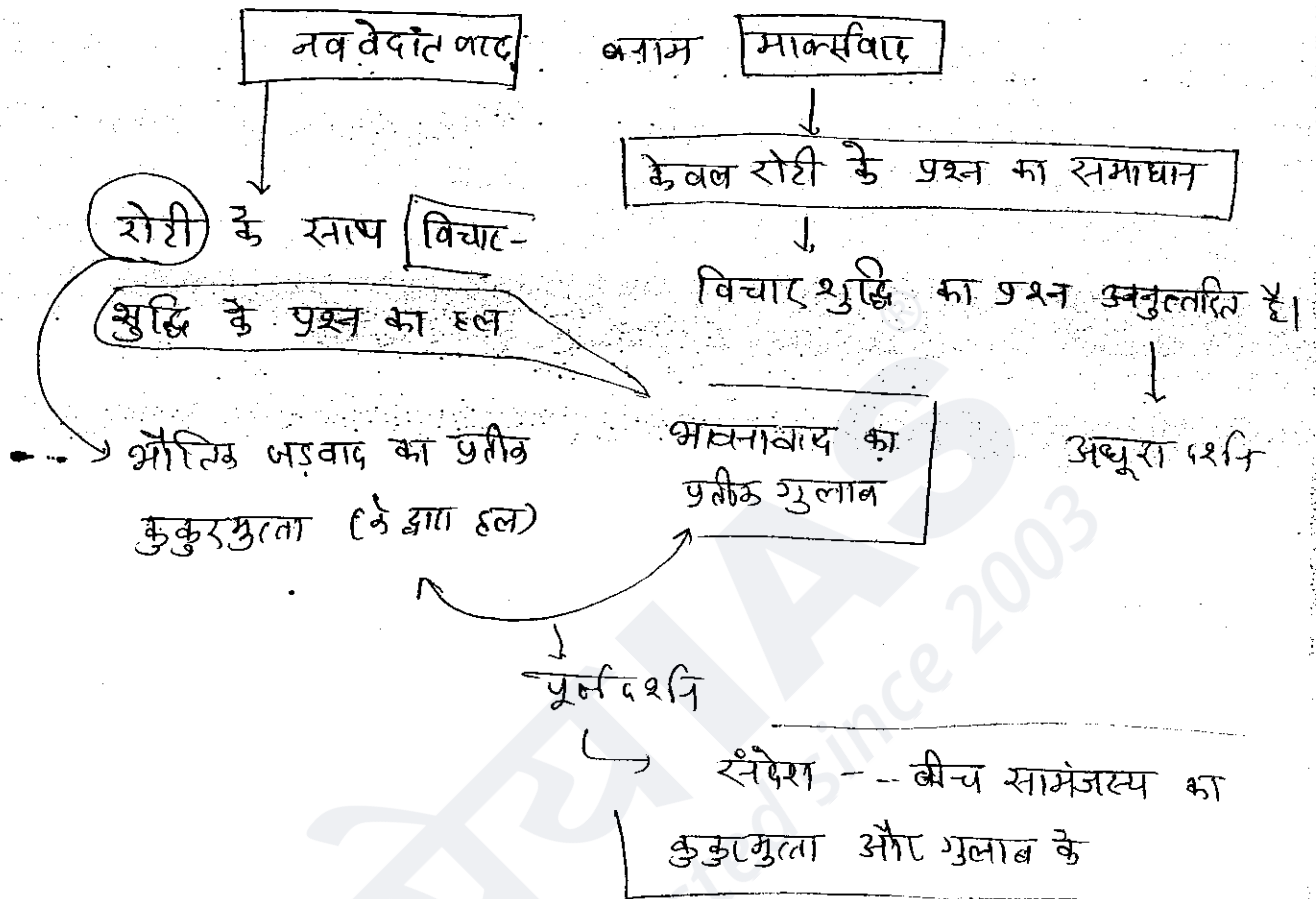 नव वेदांत वाद बनाम मार्क्सवाद
केवल रोटी के प्रश्न का समाधान
रोटी के साथ विचार-
शुद्धि के प्रश्न का हल
विचार शुद्धि का प्रश्न अनुत्तरित है।
भौतिक जड़वाद का प्रतीक
कुकुरमुत्ता (के द्वारा हल)
भावनावाद का
प्रतीक गुलाब
अधूरा दर्शन
पूर्ण दर्शन
संदेश - -- बीच सामंजस्य का
कुकुरमुत्ता और गुलाब के
IAS
since 2003